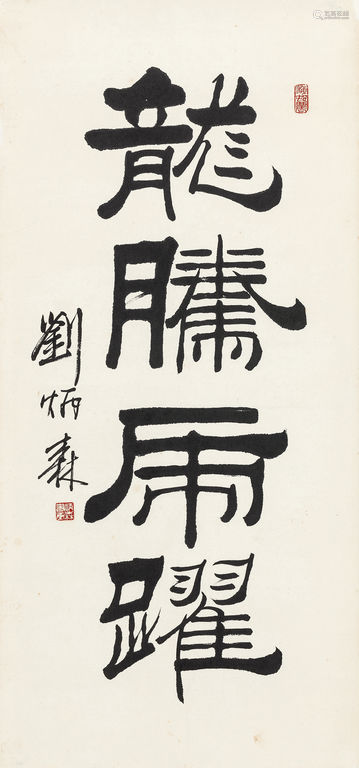 龍騰虎躍
劉炳森